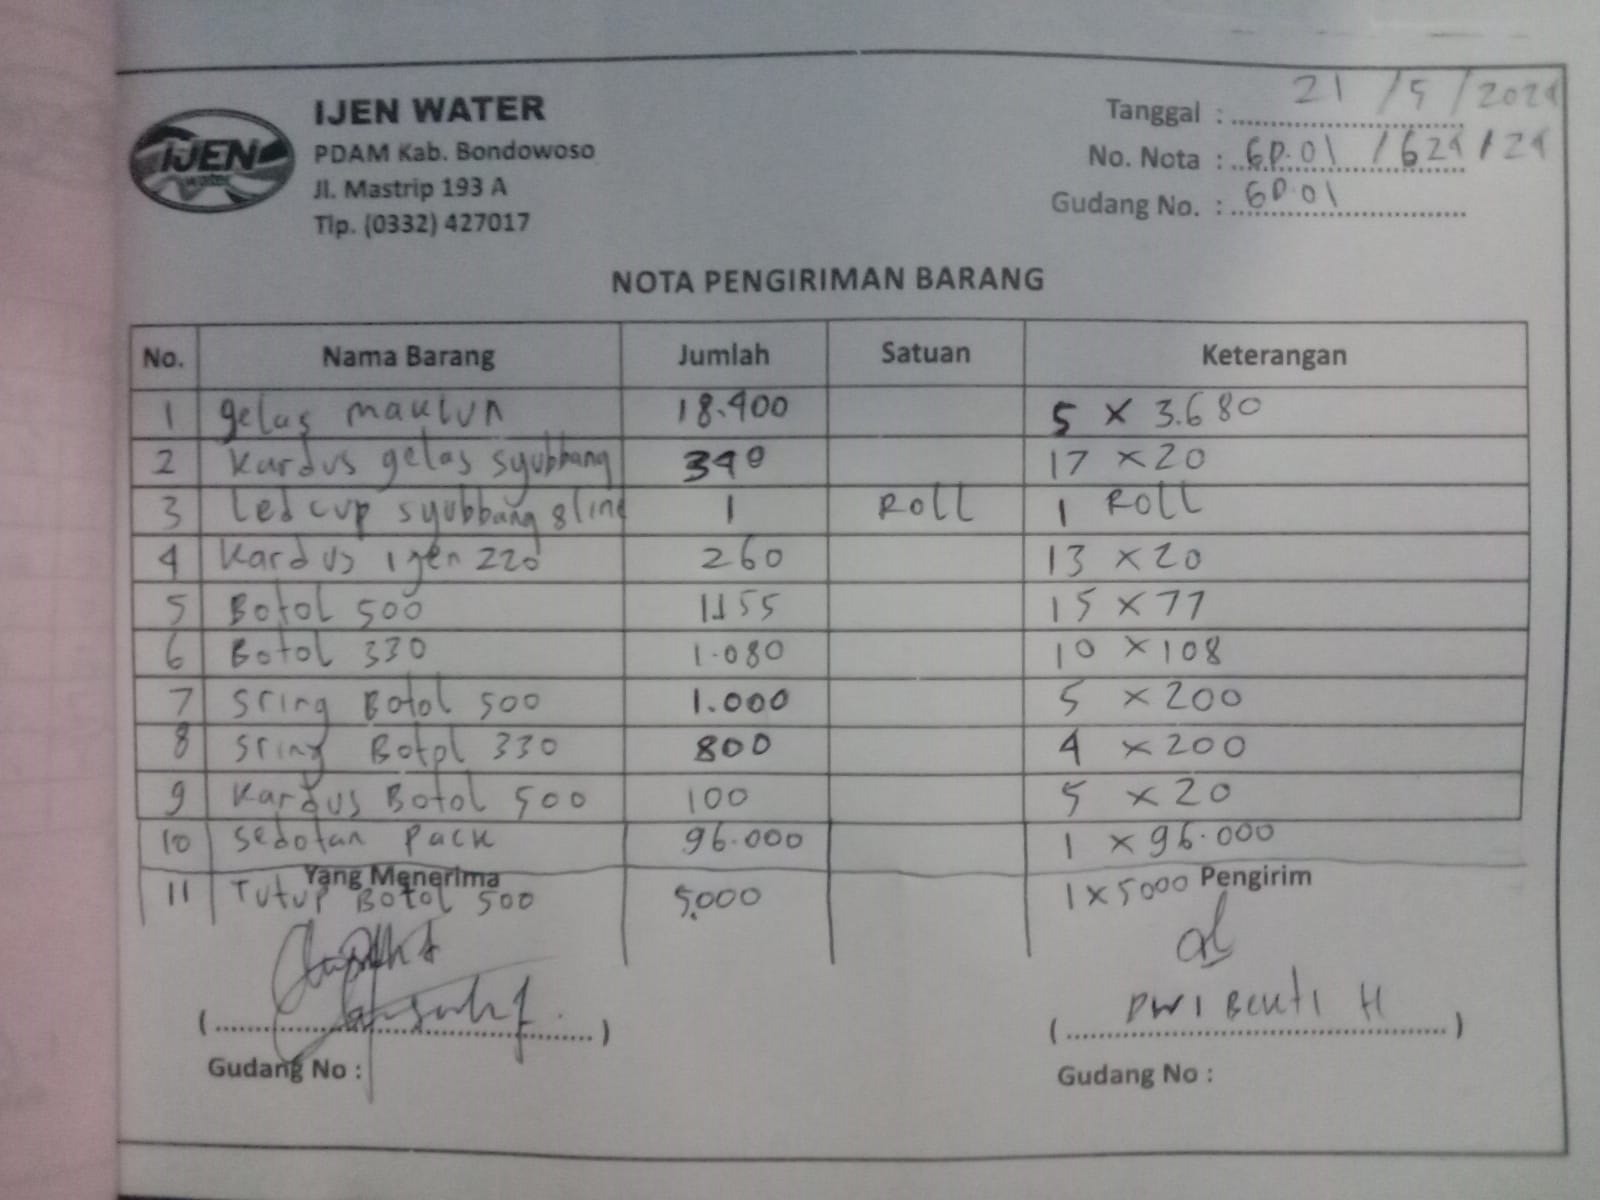 IJEN WATER
PDAM Kab. Bondowoso
Jl. Mastrip 193 A
Tlp. (0332) 427017
IJEN
water
Tanggal : 21 / 5 / 2024
No. Nota : GD.01 / 624 / 24
Gudang No. : GD.01
NOTA PENGIRIMAN BARANG
No. Nama Barang Jumlah Satuan Keterangan
1 gelas maklun 18.400 5 x 3.680
2 Kardus gelas syubbang 340 17 x 20
3 Led cup syubbang 8 line 1 Roll 1 Roll
4 Kardus Ijen 220 260 13 x 20
5 Botol 500 1155 15 x 77
6 Botol 330 1.080 10 x 108
7 Sring Botol 500 1.000 5 x 200
8 Sring Botol 330 800 4 x 200
9 Kardus Botol 500 100 5 x 20
10 Sedotan pack 96.000 1 x 96.000
Yang Menerima Pengirim
11 Tutup Botol 500 5.000 1 x 5000
(....................) (DWI H)
Gudang No : Gudang No :